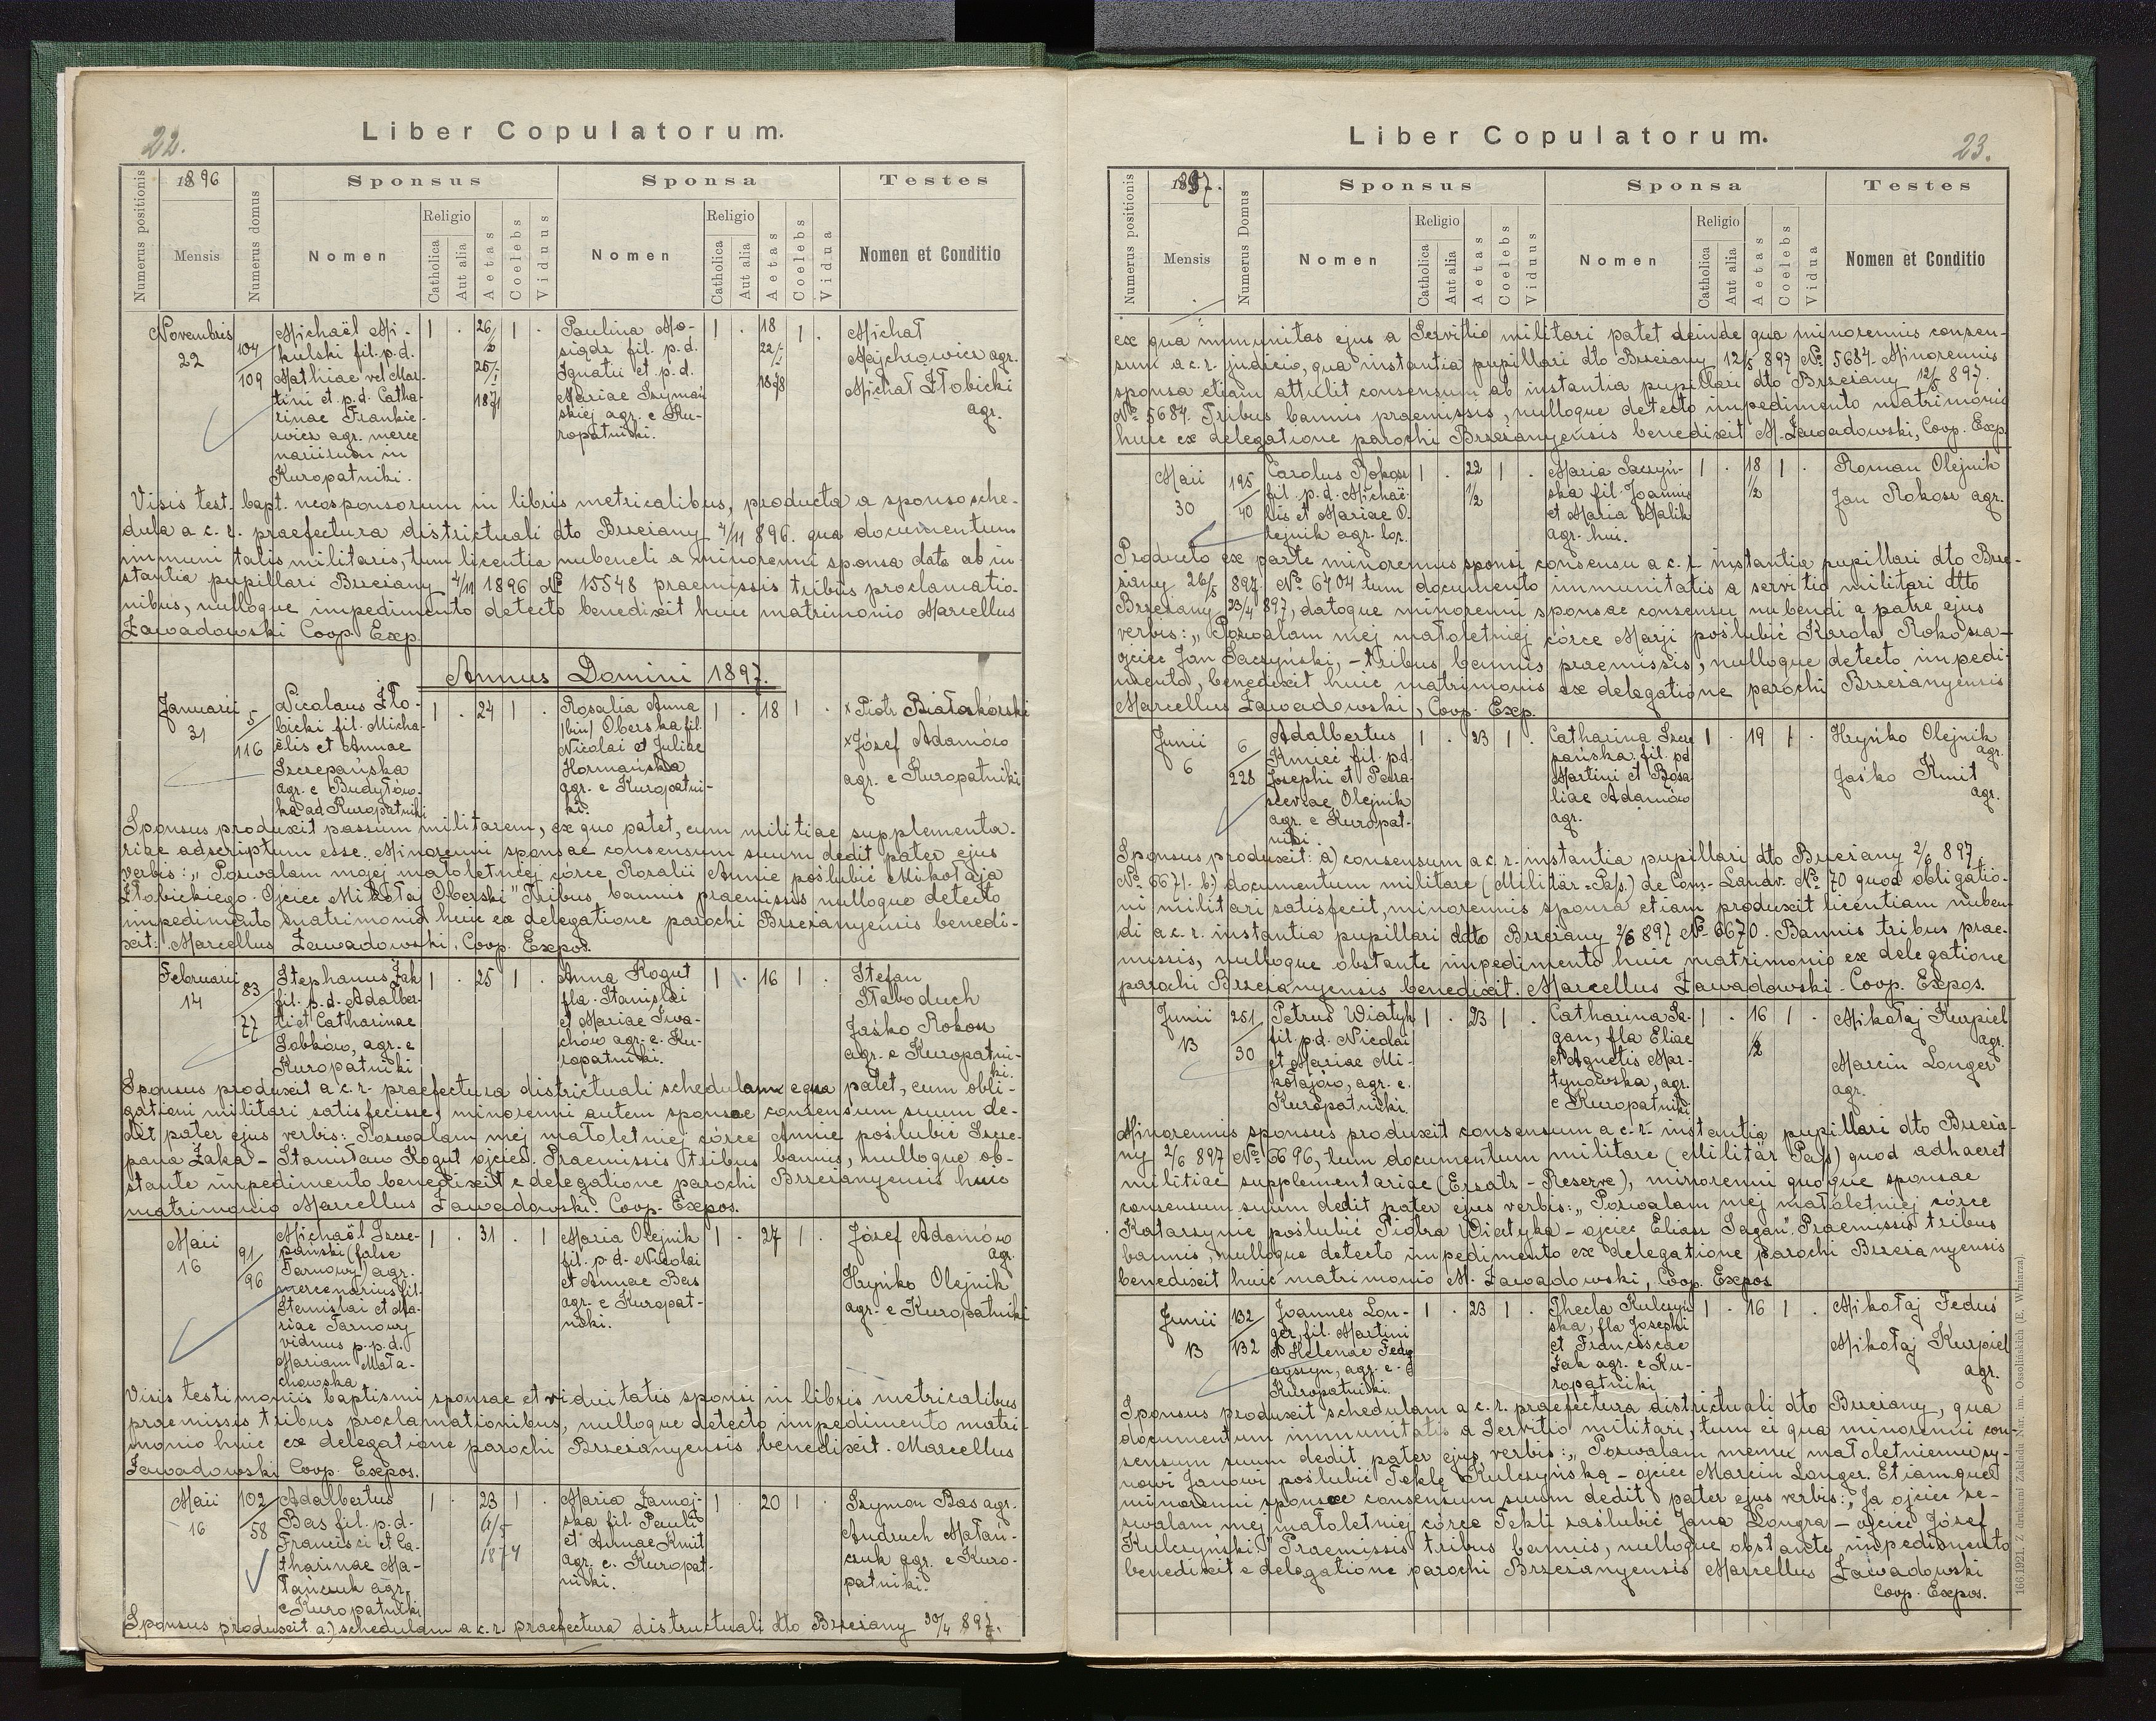 22.
Liber Copulatorum.
Numerus positionis
1896
Mensis
Numerus domus
Sponsus
Nomen
Religio
Catholica
Aut alia
Aetas
Coelebs
Viduus
Sponsa
Nomen
Religio
Catholica
Aut alia
Aetas
Coelebs
Vidua
Testes
Nomen et Conditio
Novembris
22
104/109
Michaël Mi-
kulski fil. p.d.
Mathiae vel Mar-
tini et p.d. Catha-
rinae Frankie-
wicz agr. merce
nariorum in
Kuropatniki.
1 . 26 1 .
25/
1871
Paulina Mo-
siądz fil. p.d.
Ignatii et p.d.
Mariae Szymań
skiej agr. e Ku-
ropatniki.
1 . 18 1 .
22/
1878
Michał
Majchrowicz agr.
Michał Złobicki
agr.
Visis test. bapt. neosponsorum in libris metricalibus, producta a sponso sche-
dula a c. r. praefectura districtuali dto Brzeżany 4/11 896. qua documentum
immuni talis militaris, tum licentia nubendi a minorenni sponsa dato ab in-
stantia pupillari Brzeżany 4/11 1896 No 15548 praemissis tribus proclamatio-
nibus, nulloque impedimento detecto benedixit huic matrimonio Marcellus
Zawadowski Coop. Exp.
Annus Domini 1897.
Januarii
31
5/116
Nicolaus Zło-
bicki fil. Micha-
ëlis et Annae
Szczepańska
agr. e Budyłów-
ka ad Kuropatniki
1 . 24 1 .
Rosalia Anna
/bin/ Oberska fil.
Nicolai et Juliae
Hormańska
agr. e Kuropatni-
ki.
1 . 18 1 .
x Piotr Białoskórski
x Józef Adamów
agr. e Kuropatniki
Sponsus produxit passum militarem, ex quo patet, eum militiae supplementa-
riae adscriptum esse. Minorenni sponsae consensum suum dedit pater ejus
verbis: „Pozwalam mojej małoletniej córce Rozalii Annie poślubić Mikołaja
Złobickiego. Ojciec Mikołaj Oberski" Tribus bannis praemissis nulloque detecto
impedimento matrimonio huic ex delegatione parochi Brzeżanyensis benedi-
xit. Marcellus Zawadowski, Coop. Expos.
Februarii
14
83/77
Stephanus Żak
fil. p.d. Adalber-
ti et Catharinae
Sobków, agr. e
Kuropatniki
1 . 25 1 .
Anna Kogut
fla. Stanislai
et Mariae Iwa-
chów agr. e. Ku-
ropatniki.
1 . 16 1 .
Stefan
Słaboduch
Jaśko Rokosz
agr. e Kuropatni-
ki.
Sponsus produxit a c. r. praefectura districtuali schedulam e qua patet, eum obli-
gationi militari satisfecisse, minorenni autem sponsae consensum suum de-
dit pater ejus verbis: Pozwalam mej małoletniej córce Annie poślubić Szcze-
pana Żaka – Stanisław Kogut ojciec. Praemissis tribus bannis, nulloque ob-
stante impedimento benedixit e delegatione parochi Brzeżanyensis huic
matrimonio Marcellus Zawadowski. Coop. Expos.
Maii
16
91/96
Michaël Szcze-
pański (false
Tarnowy) agr.
mercenarius fil.
Stanislai et Ma-
riae Tarnowy
viduus p. p.d.
Mariam Mała-
chowska
1 . 31 . 1
Maria Olejnik
fil. p.d. Nicolai
et Annae Bas
agr. e Kuropat-
niki.
1 . 27 1 .
Józef Adamów
agr.
Hryńko Olejnik
agr. e Kuropatniki
Visis testimoniis baptismi sponsae et viduitatis sponsi in libris metricalibus
praemissis tribus proclamationibus, nulloque detecto impedimento matri-
monio huic ex delegatione parochi Brzeżanyensis benedixit. Marcellus
Zawadowski Coop. Expos.
Maii
16
102/58
Adalbertus
Bas fil. p.d.
Francisci et Ca-
tharinae Ma-
łańczuk agr.
e Kuropatniki
1 . 23 1 .
1874
Maria Zamoj-
ska fil. Pauli
et Annae Kmit
agr. e. Kuropat-
niki.
1 . 20 1 .
Szymon Bas agr.
Andruch Małań-
czuk agr. e Kuro-
patniki.
Sponsus produxit a.) schedulam a c. r. praefectura districtuali dto Brzeżany 30/4 897.
23.
Liber Copulatorum.
Numerus positionis
1897.
Mensis
Numerus Domus
Sponsus
Nomen
Religio
Catholica
Aut alia
Aetas
Coelebs
Viduus
Sponsa
Nomen
Religio
Catholica
Aut alia
Aetas
Coelebs
Vidua
Testes
Nomen et Conditio
ex qua immunitas ejus a Servitio militari patet deinde qua minorennis consen-
sum a c. r. judicio, qua instantia pupillari dto Brzeżany 12/5 897 No 5687. Minorennis
sponsa etiam attulit consensum ab instantia pupillari dto Brzeżany 12/5 897.
No 5684. Tribus bannis praemissis, nulloque detecto impedimento matrimonio
huic ex delegatione parochi Brzeżanyensis benedixit M. Zawadowski, Coop. Exp.
Maii
30
195/40
Carolus Rokosz
fil. p.d. Michaë-
lis et Mariae O-
lejnik agr. loc.
1 . 22 1/2 1 .
Maria Saczyń-
ska fil. Joannis
et Maria Malik
agr. hui.
1 . 18 1/2 1 .
Roman Olejnik
Jan Rokosz agr.
Producto ex parte minorennis sponsi consensu a c. r. instantia pupillari dto Brze-
żany 26/5 897. No 6404 tum documento immunitatis a servitio militari dtto
Brzeżany 23/4 897, datoque minorenni sponsae consensu nubendi a patre ejus
verbis: „Pozwalam mej małoletniej córce Marji poślubić Karola Rokosza –
ojciec Jan Saczyński, – tribus bannis praemissis, nulloque detecto impedi-
mento, benedixit huic matrimonio ex delegatione parochi Brzeżanyensis
Marcellus Zawadowski, Coop. Exp.
Junii
6
6/228
Adalbertus
Kmieć fil. p.d.
Josephi et Para-
scevae Olejnik
agr. e Kuropat-
niki.
1 . 23 1 .
Catharina Szcze
pańska fil. pd
Martini et Rosa-
liae Adamów
agr.
1 . 19 1 .
Hryńko Olejnik
agr.
Jaśko Kmit
agr.
Sponsus produxit: a) consensum a c. r. instantia pupillari dto Brzeżany 2/6 897
No 6671. b.) documentum militare (Militär-Paß.) de Com. Landw. No 70 quod obligatio-
ni militari satisfecit, minorennis sponsa etiam produxit licentiam nuben-
di a c. r. instantia pupillari ddto Brzeżany 2/6 897 No 6670. Bannis tribus prae-
missis, nulloque obstante impedimento huic matrimonio ex delegatione
parochi Brzeżanyensis benedixit. Marcellus Zawadowski. Coop. Expos.
Junii
13
251/30
Petrus Wiatyk
fil. p.d. Nicolai
et Mariae Mi-
kołajów, agr. e.
Kuropatniki.
1 . 23 1 .
Catharina Sa-
gan, fla Eliae
et Agnetis Mar-
tynowska, agr.
e Kuropatniki
1 . 16 1/2 1 .
Mikołaj Kurpiel
agr.
Marcin Longer
agr.
Minorennis sponsus produxit consensum a c. r. instantia pupillari dto Brzeża-
ny 2/6 897 No 6696, tum documentum militare (Militär Paß) quod adhaeret
militiae supplementariae (Ersatz-Reserve), minorenni quoque sponsae
consensum suum dedit pater ejus verbis: „Pozwalam mej małoletniej córce
Katarzynie poślubić Piotra Wiatyka – ojciec Eliasz Sagan". Praemissis tribus
bannis, nulloque detecto impedimento ex delegatione parochi Brzeżanyensis
benedixit huic matrimonio M. Zawadowski, Coop. Expos.
Junii
13
132/132
Joannes Lon-
ger, fil. Martini
et Helenae Fedy
agr. e.
Kuropatniki.
1 . 23 1 .
Thecla Kulczyń
ska, fla Josephi
et Franciscae
Żak agr. e Ku-
ropatniki
1 . 16 1 .
Mikołaj Feduś
Mikołaj Kurpiel
agr.
Sponsus produxit schedulam a c. r. praefectura districtuali dto Brzeżany, qua
documentum immunitatis a Servitio militari, tum ei qua minorenni con-
sensum suum dedit pater ejus verbis: „Pozwalam memu małoletniemu sy-
nowi Janowi poślubić Teklę Kulczyńską – ojciec Marcin Longer. Etiamque
minorenni sponsae consensum suum dedit pater ejus verbis: „Ja ojciec ze-
zwalam mej małoletniej córce Tekli zaślubić Jana Longra – ojciec Józef
Kulczyński." Praemissis tribus bannis, nulloque obstante impedimento
benedixit e delegatione parochi Brzeżanyensis Marcellus Zawadowski
Coop. Expos.
166.1921. Z drukarni Zakładu Nar. im. Ossolińskich (E. Winiarza).